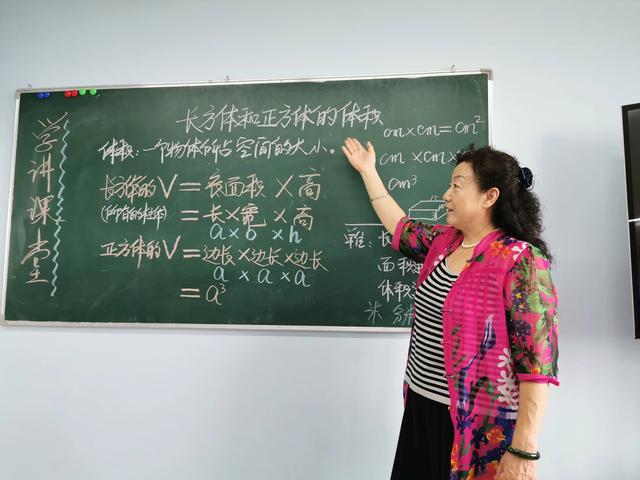 学讲课堂
长方体和正方体的体积
体积：一个物体所占空间的大小。
长方体的V=底面积×高
=长×宽×高
a×b×h
正方体的V=边长×边长×边长
a×a×a
=a³
cm×cm=cm²
cm×cm×
cm³
难：长
面积
体积
米 分